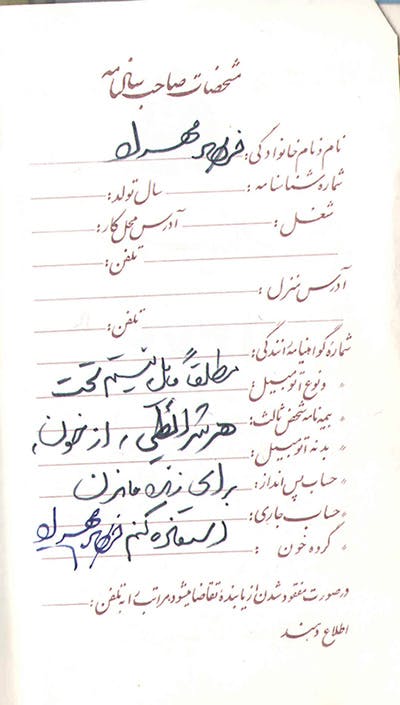 مشخصات صاحب سالنامه
نام و نام خانوادگی: فریدون مهدی
شماره شناسنامه: سال تولد:
شغل: آدرس محل کار:
تلفن:
آدرس منزل:
تلفن:
شماره گواهینامه رانندگی:
مطلقاً مایل نیستم تحت
* ونوع اتومبیل:
* بیمه نامه شخص ثالث:
هر شرائطی، از خون
* بدنه اتومبیل:
* حساب پس انداز:
برای زنده ماندن
* حساب جاری:
استفاده کنم
* گروه خون:
درصورت مفقود شدن از یابنده تقاضا میشود مراتب را به تلفن:
اطلاع دهند